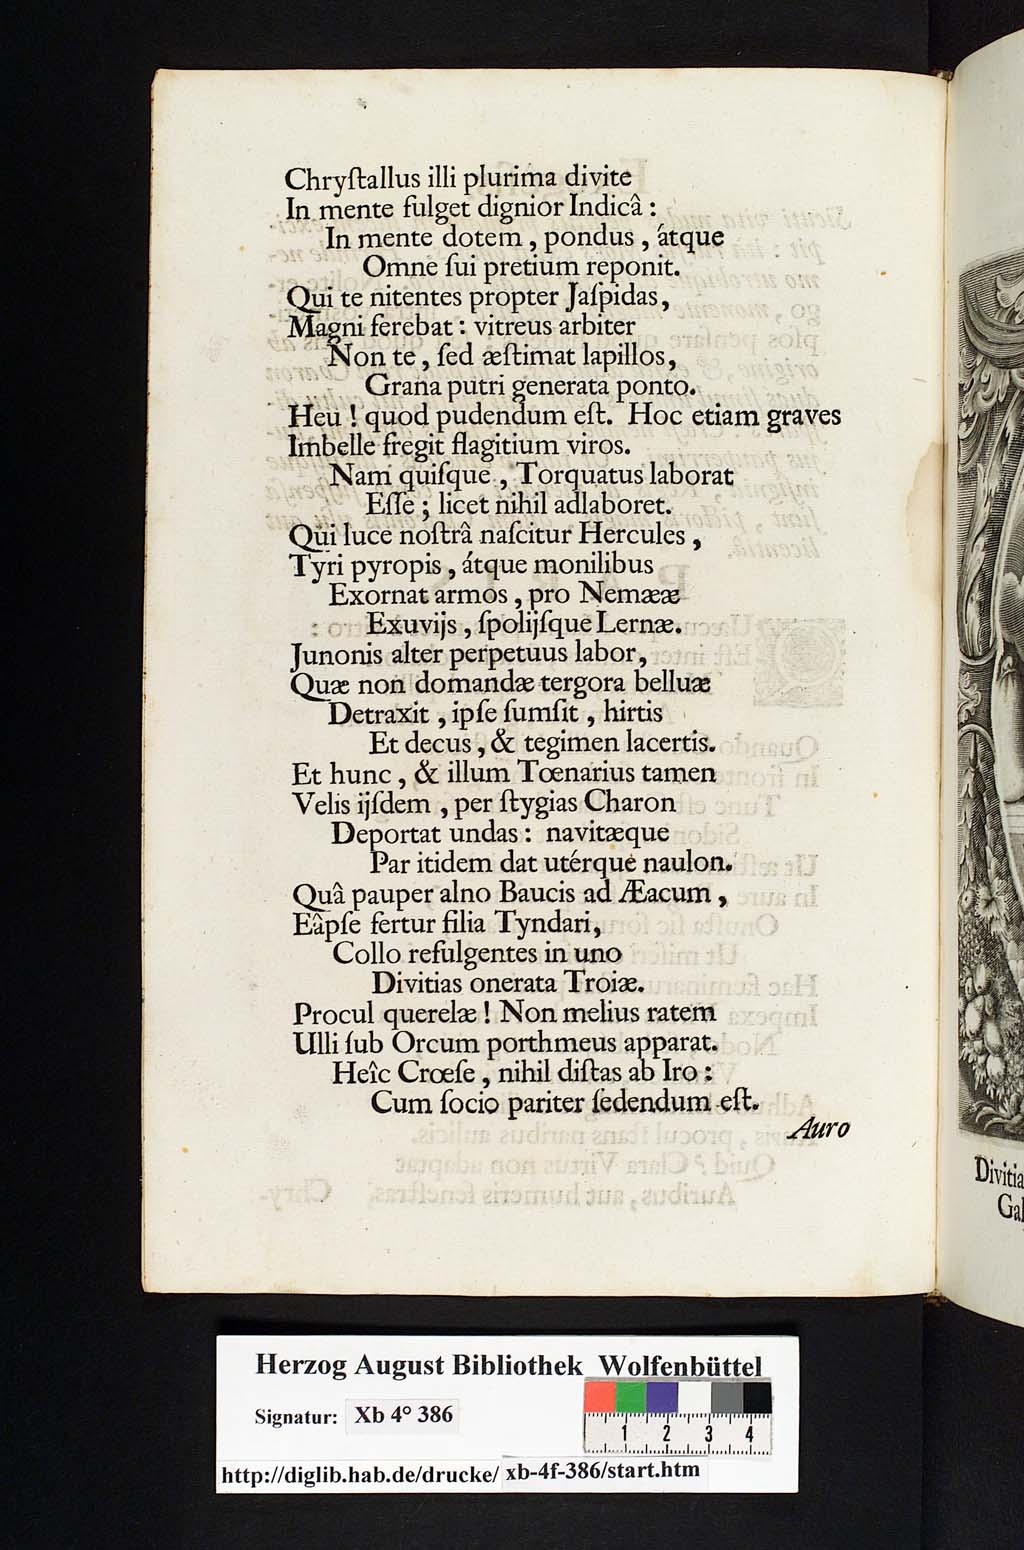 Chryſtallus illi plurima divite
In mente fulget dignior Indicâ :
In mente dotem , pondus , átque
Omne ſui pretium reponit.
Qui te nitentes propter Jaſpidas,
Magni ferebat : vitreus arbiter
Non te , ſed æſtimat lapillos,
Grana putri generata ponto.
Heu ! quod pudendum eſt. Hoc etiam graves
Imbelle fregit flagitium viros.
Nam quiſque , Torquatus laborat
Eſſe ; licet nihil adlaboret.
Qui luce noſtrâ naſcitur Hercules ,
Tyri pyropis , átque monilibus
Exornat armos , pro Nemææ
Exuvijs , ſpolijſque Lernæ.
Junonis alter perpetuus labor,
Quæ non domandæ tergora belluæ
Detraxit , ipſe ſumſit , hirtis
Et decus , & tegimen lacertis.
Et hunc , & illum Tœnarius tamen
Velis ijſdem , per ſtygias Charon
Deportat undas : navitæque
Par itidem dat utérque naulon.
Quâ pauper alno Baucis ad Æacum ,
Eâpſe fertur filia Tyndari,
Collo refulgentes in uno
Divitias onerata Troiæ.
Procul querelæ ! Non melius ratem
Ulli ſub Orcum porthmeus apparat.
Heîc Crœſe , nihil diſtas ab Iro :
Cum ſocio pariter ſedendum eſt.
Auro
Divitia
Gal
Herzog August Bibliothek Wolfenbüttel
Signatur: Xb 4° 386
1 2 3 4
http://diglib.hab.de/drucke/ xb-4f-386/start.htm